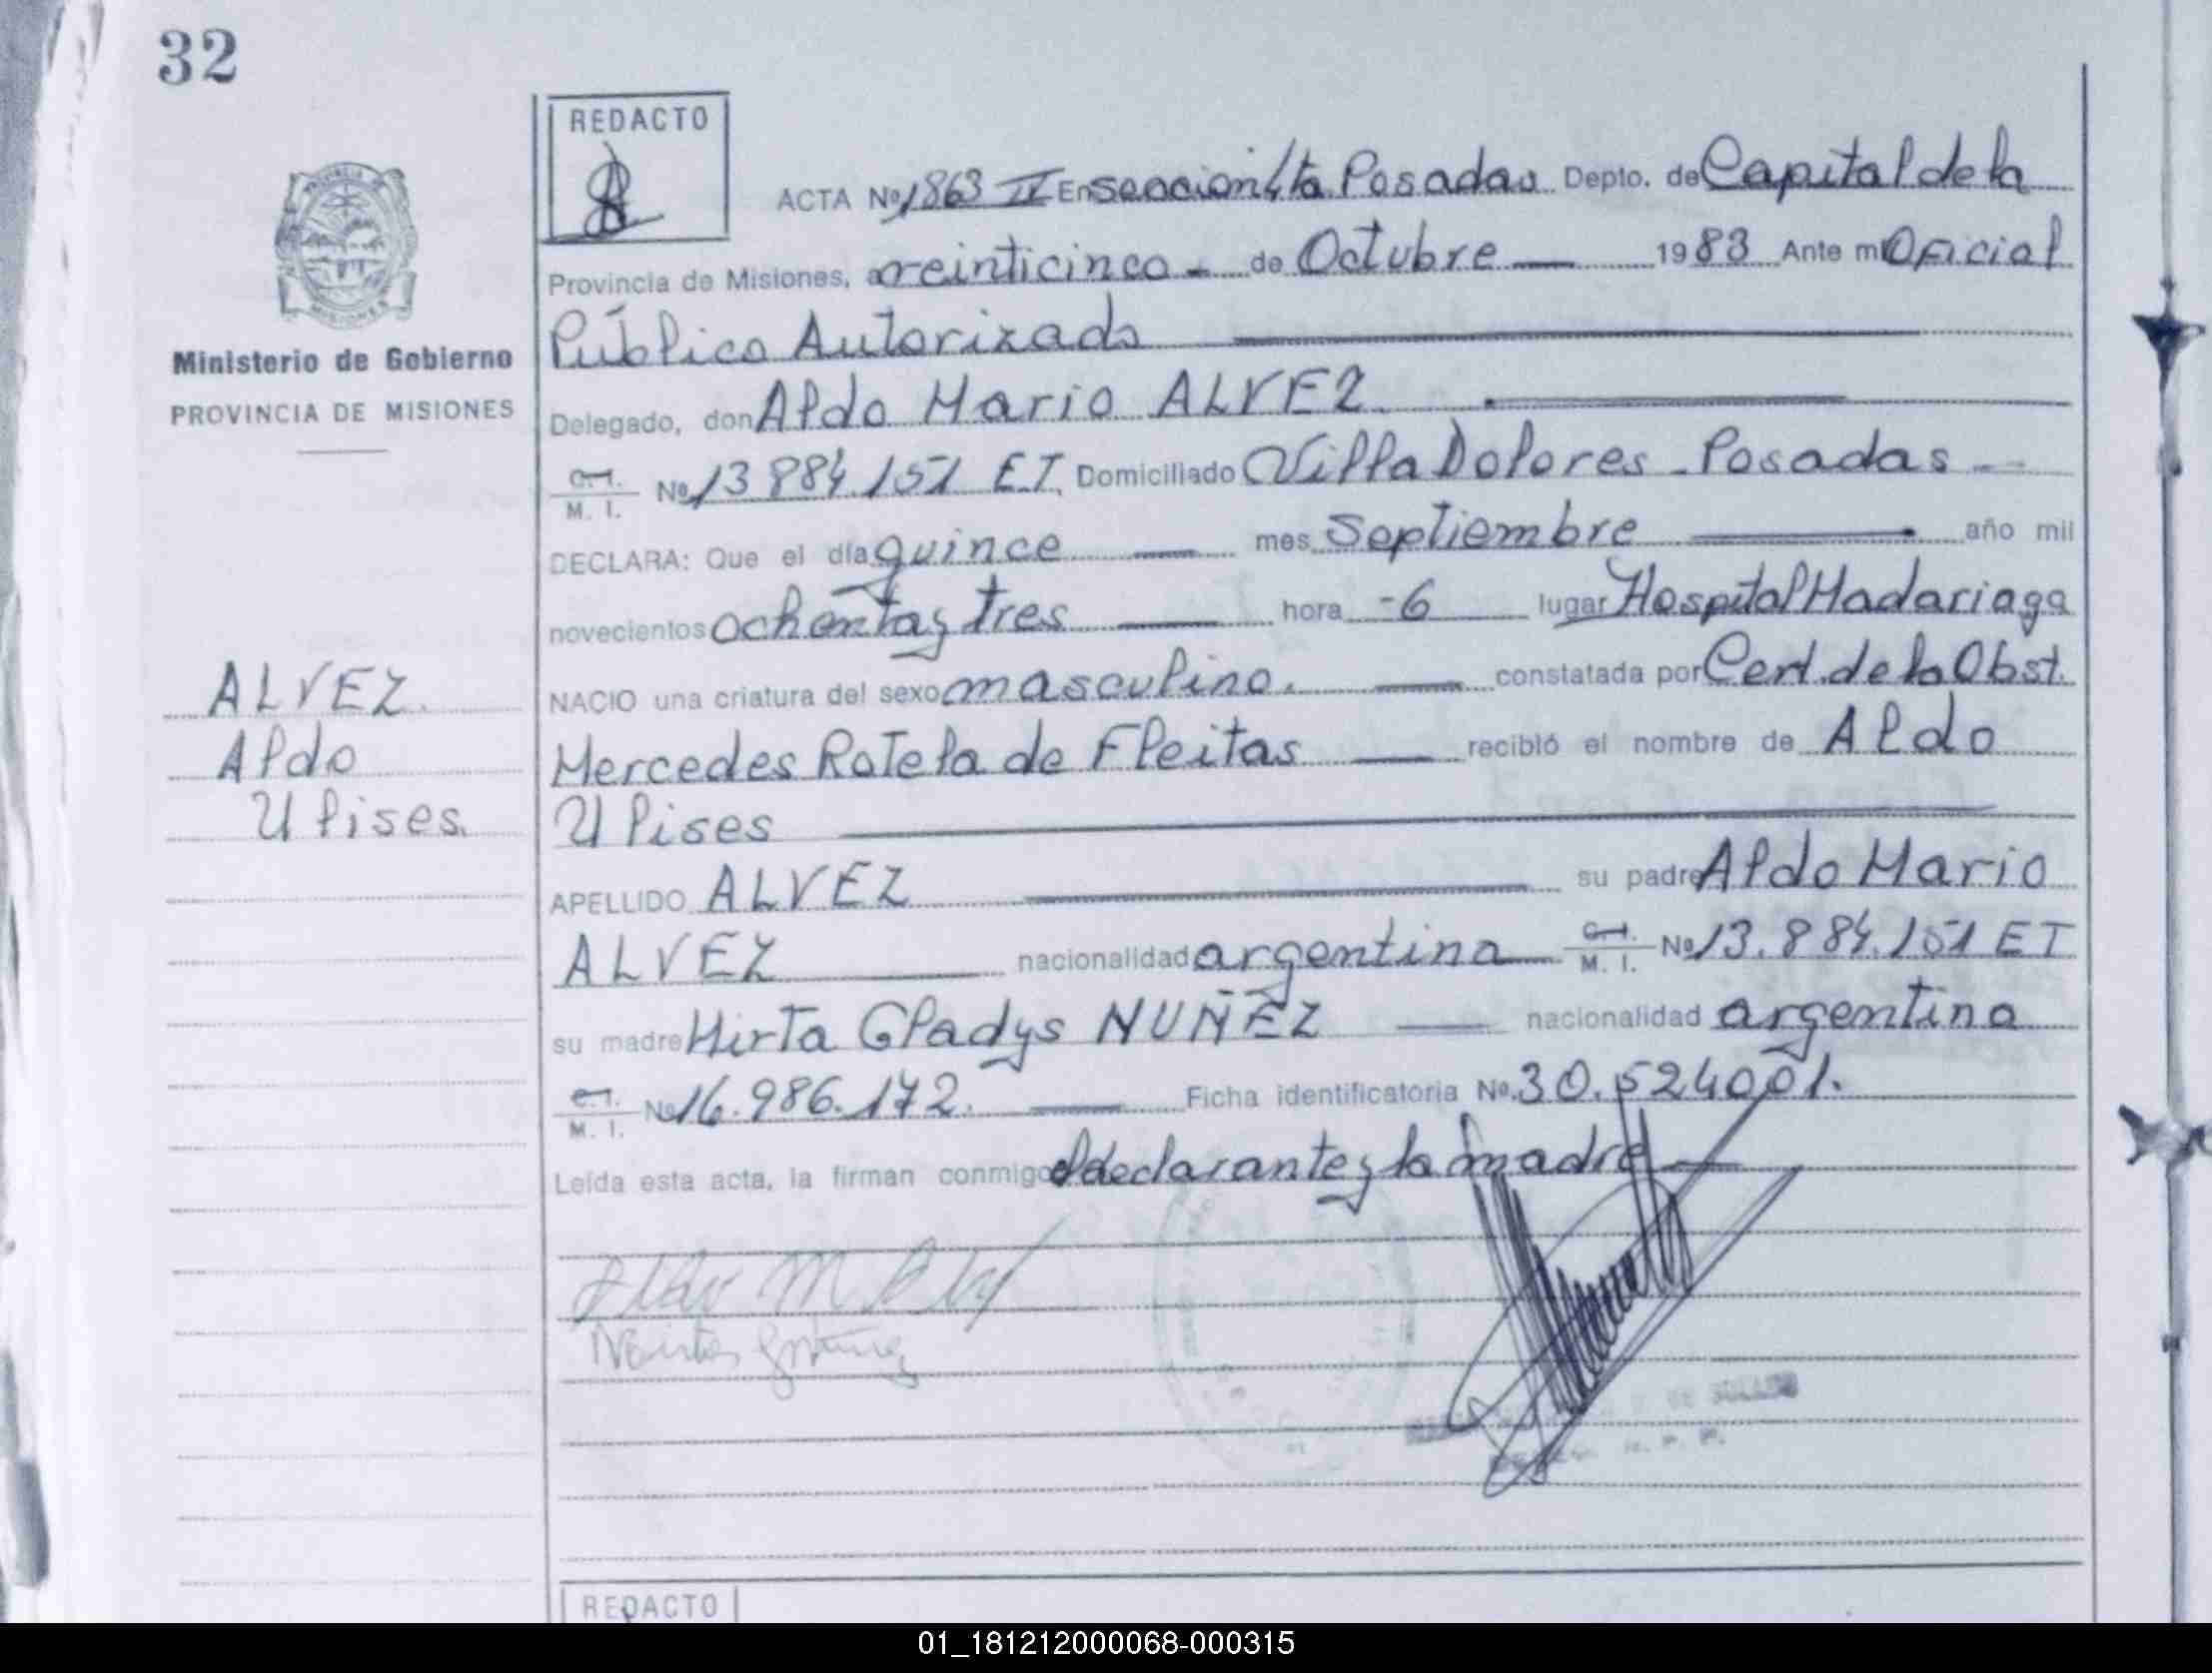 32
REDACTO
ACTA Nº 1863 IV En sección 4ta Posadas Depto. de Capital de la
Provincia de Misiones, a veinticinco - de Octubre — 1983 Ante mi Oficial
Público Autorizado
Delegado, don Aldo Mario ALVEZ.
C.I. M. I. Nº 13.884.151 E.T. Domiciliado Villa Dolores - Posadas -
DECLARA: Que el día quince — mes Septiembre — año mil
novecientos ochenta y tres — hora -6 lugar Hospital Madariaga
NACIO una criatura del sexo masculino. — constatada por Cert. de la Obst.
Mercedes Rotela de Fleitas — recibió el nombre de Aldo
Ulises
APELLIDO ALVEZ — su padre Aldo Mario
ALVEZ — nacionalidad argentina — C.I. M. I. Nº 13.884.151 ET
su madre Mirta Gladys NUÑEZ — nacionalidad argentina
C.I. M. I. Nº 16.986.172. — Ficha identificatoria Nº 30.524001.
Leída esta acta, la firman conmigo el declarante y la madre —
Ministerio de Gobierno
PROVINCIA DE MISIONES
ALVEZ.
Aldo
Ulises.
REDACTO
01_181212000068-000315